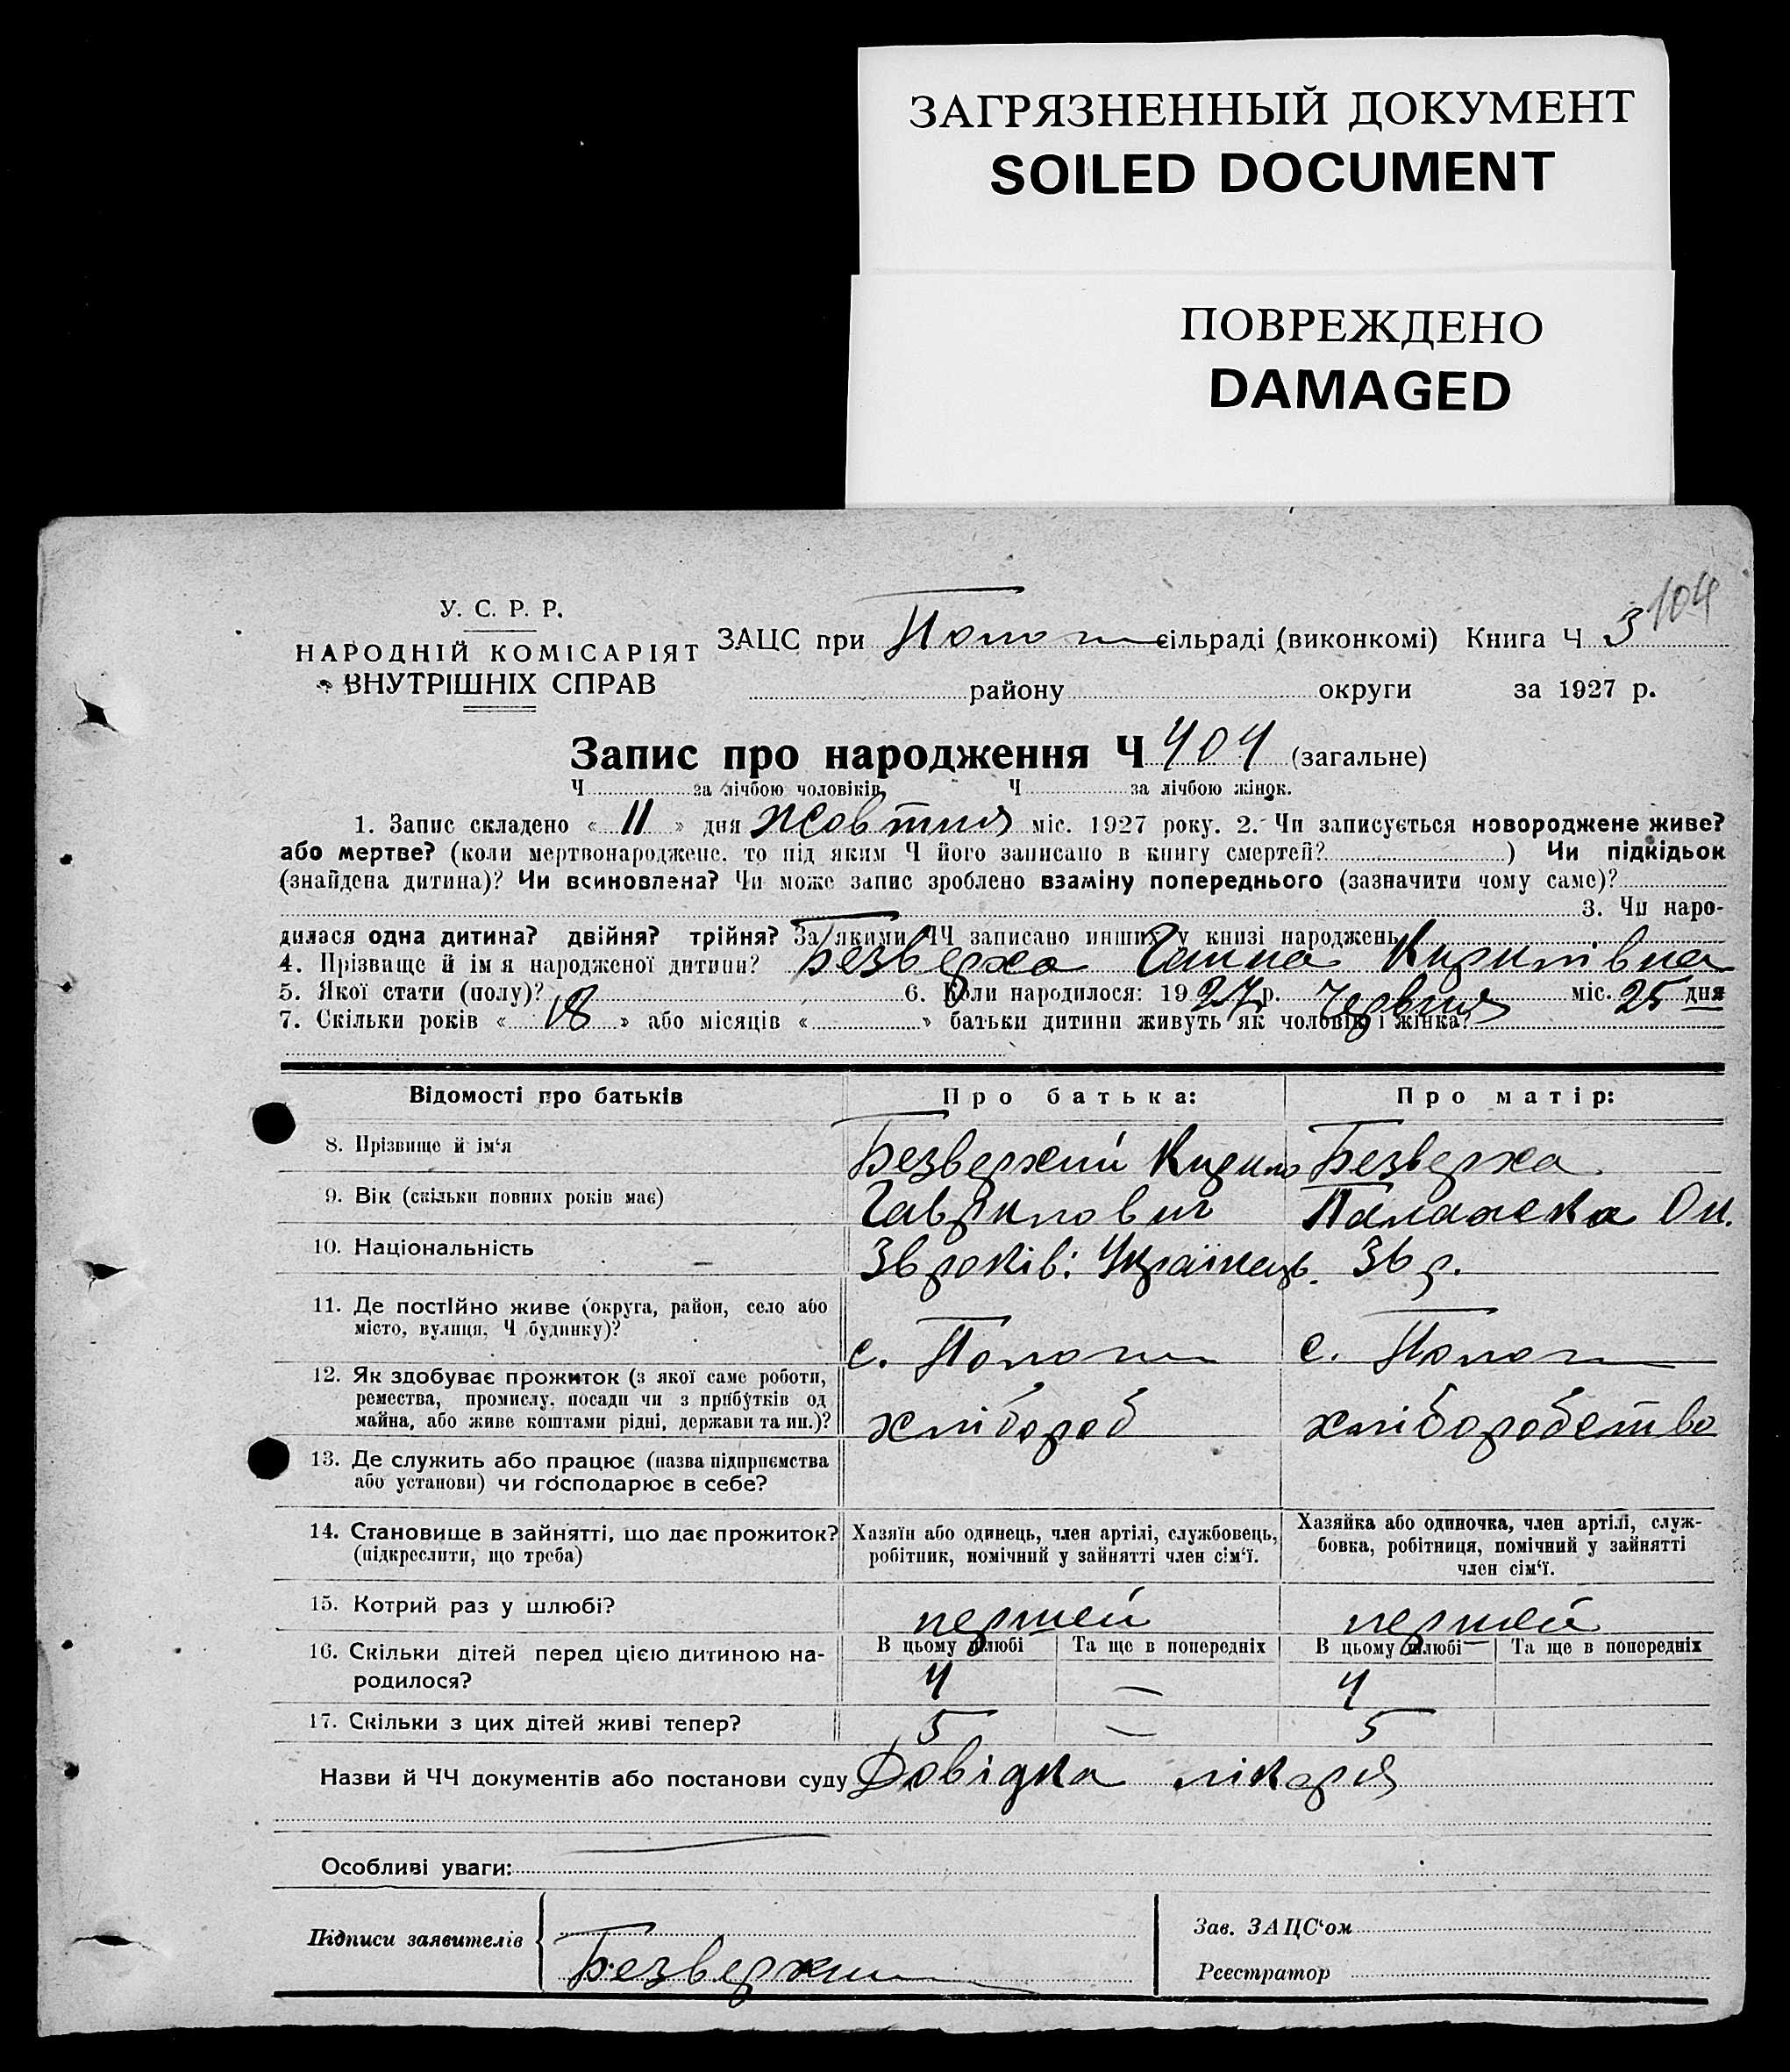 ЗАГРЯЗНЕННЫЙ ДОКУМЕНТ
SOILED DOCUMENT
ПОВРЕЖДЕНО
DAMAGED
104
У. С. Р. Р.
НАРОДНІЙ КОМІСАРІЯТ
ВНУТРІШНІХ СПРАВ
ЗАЦС при Полог сільраді (виконкомі) Книга Ч 3
району округи за 1927 р.
Запис про народження Ч 404 (загальне)
Ч за лічбою чоловіків. Ч за лічбою жінок.
1. Запис складено « 11 » дня Жовтня міс. 1927 року. 2. Чи записується новороджене живе?
або мертве? (коли мертвонароджене, то під яким Ч його записано в книгу смертей? ) Чи підкідьок
(знайдена дитина)? Чи всиновлена? Чи може запис зроблено взаміну попереднього (зазначити чому саме)?
3. Чи наро-
дилася одна дитина? двійня? трійня? За якими ЧЧ записано инших у книзі народжень
4. Прізвище й ім я народженої дитини? Безверха Ганна Кирилівна
5. Якої стати (полу)? 6. Коли народилося: 1927 р. Червня міс. 25 дня
7. Скільки років « 18 » або місяців « » батьки дитини живуть як чоловік і жінка?
Відомості про батьків Про батька: Про матір:
8. Прізвище й ім‘я Безверхий Кирило Безверха
9. Вік (скільки повних років має) Гаврилович Палажка Он.
10. Національність 36 років: Українець. 36 р.
11. Де постІйно живе (округа, район, село або
місто, вулиця, Ч будинку)? с. Полог с. Полог
12. Як здобуває прожиток (з якої саме роботи,
ремества, промислу, посади чи з прибутків од
майна, або живе коштами рідні, держави та ин.)? хлібороб хліборобство
13. Де служить або працює (назва підприємства
або установи) чи господарює в себе?
14. Становище в зайнятті, що дає прожиток? Хазяїн або одинець, член артілі, службовець, Хазяйка або одиночка, член артілі, служ-
(підкреслити, що треба) робітник, помічний у зайнятті член сім‘ї. бовка, робітниця, помічний у зайнятті
член сім‘ї.
15. Котрий раз у шлюбі? першей першей
16. Скільки дітей перед цією дитиною на- В цьому шлюбі Та ще в попередніх В цьому шлюбі Та ще в попередніх
родилося? 4 — 4
17. Скільки з цих дітей живі тепер? 5 — 5
Назви й ЧЧ документів або постанови суду Довідка лікаря
Особливі уваги:
Підписи заявителів Зав. ЗАЦС‘ом
Безверхий Реєстратор